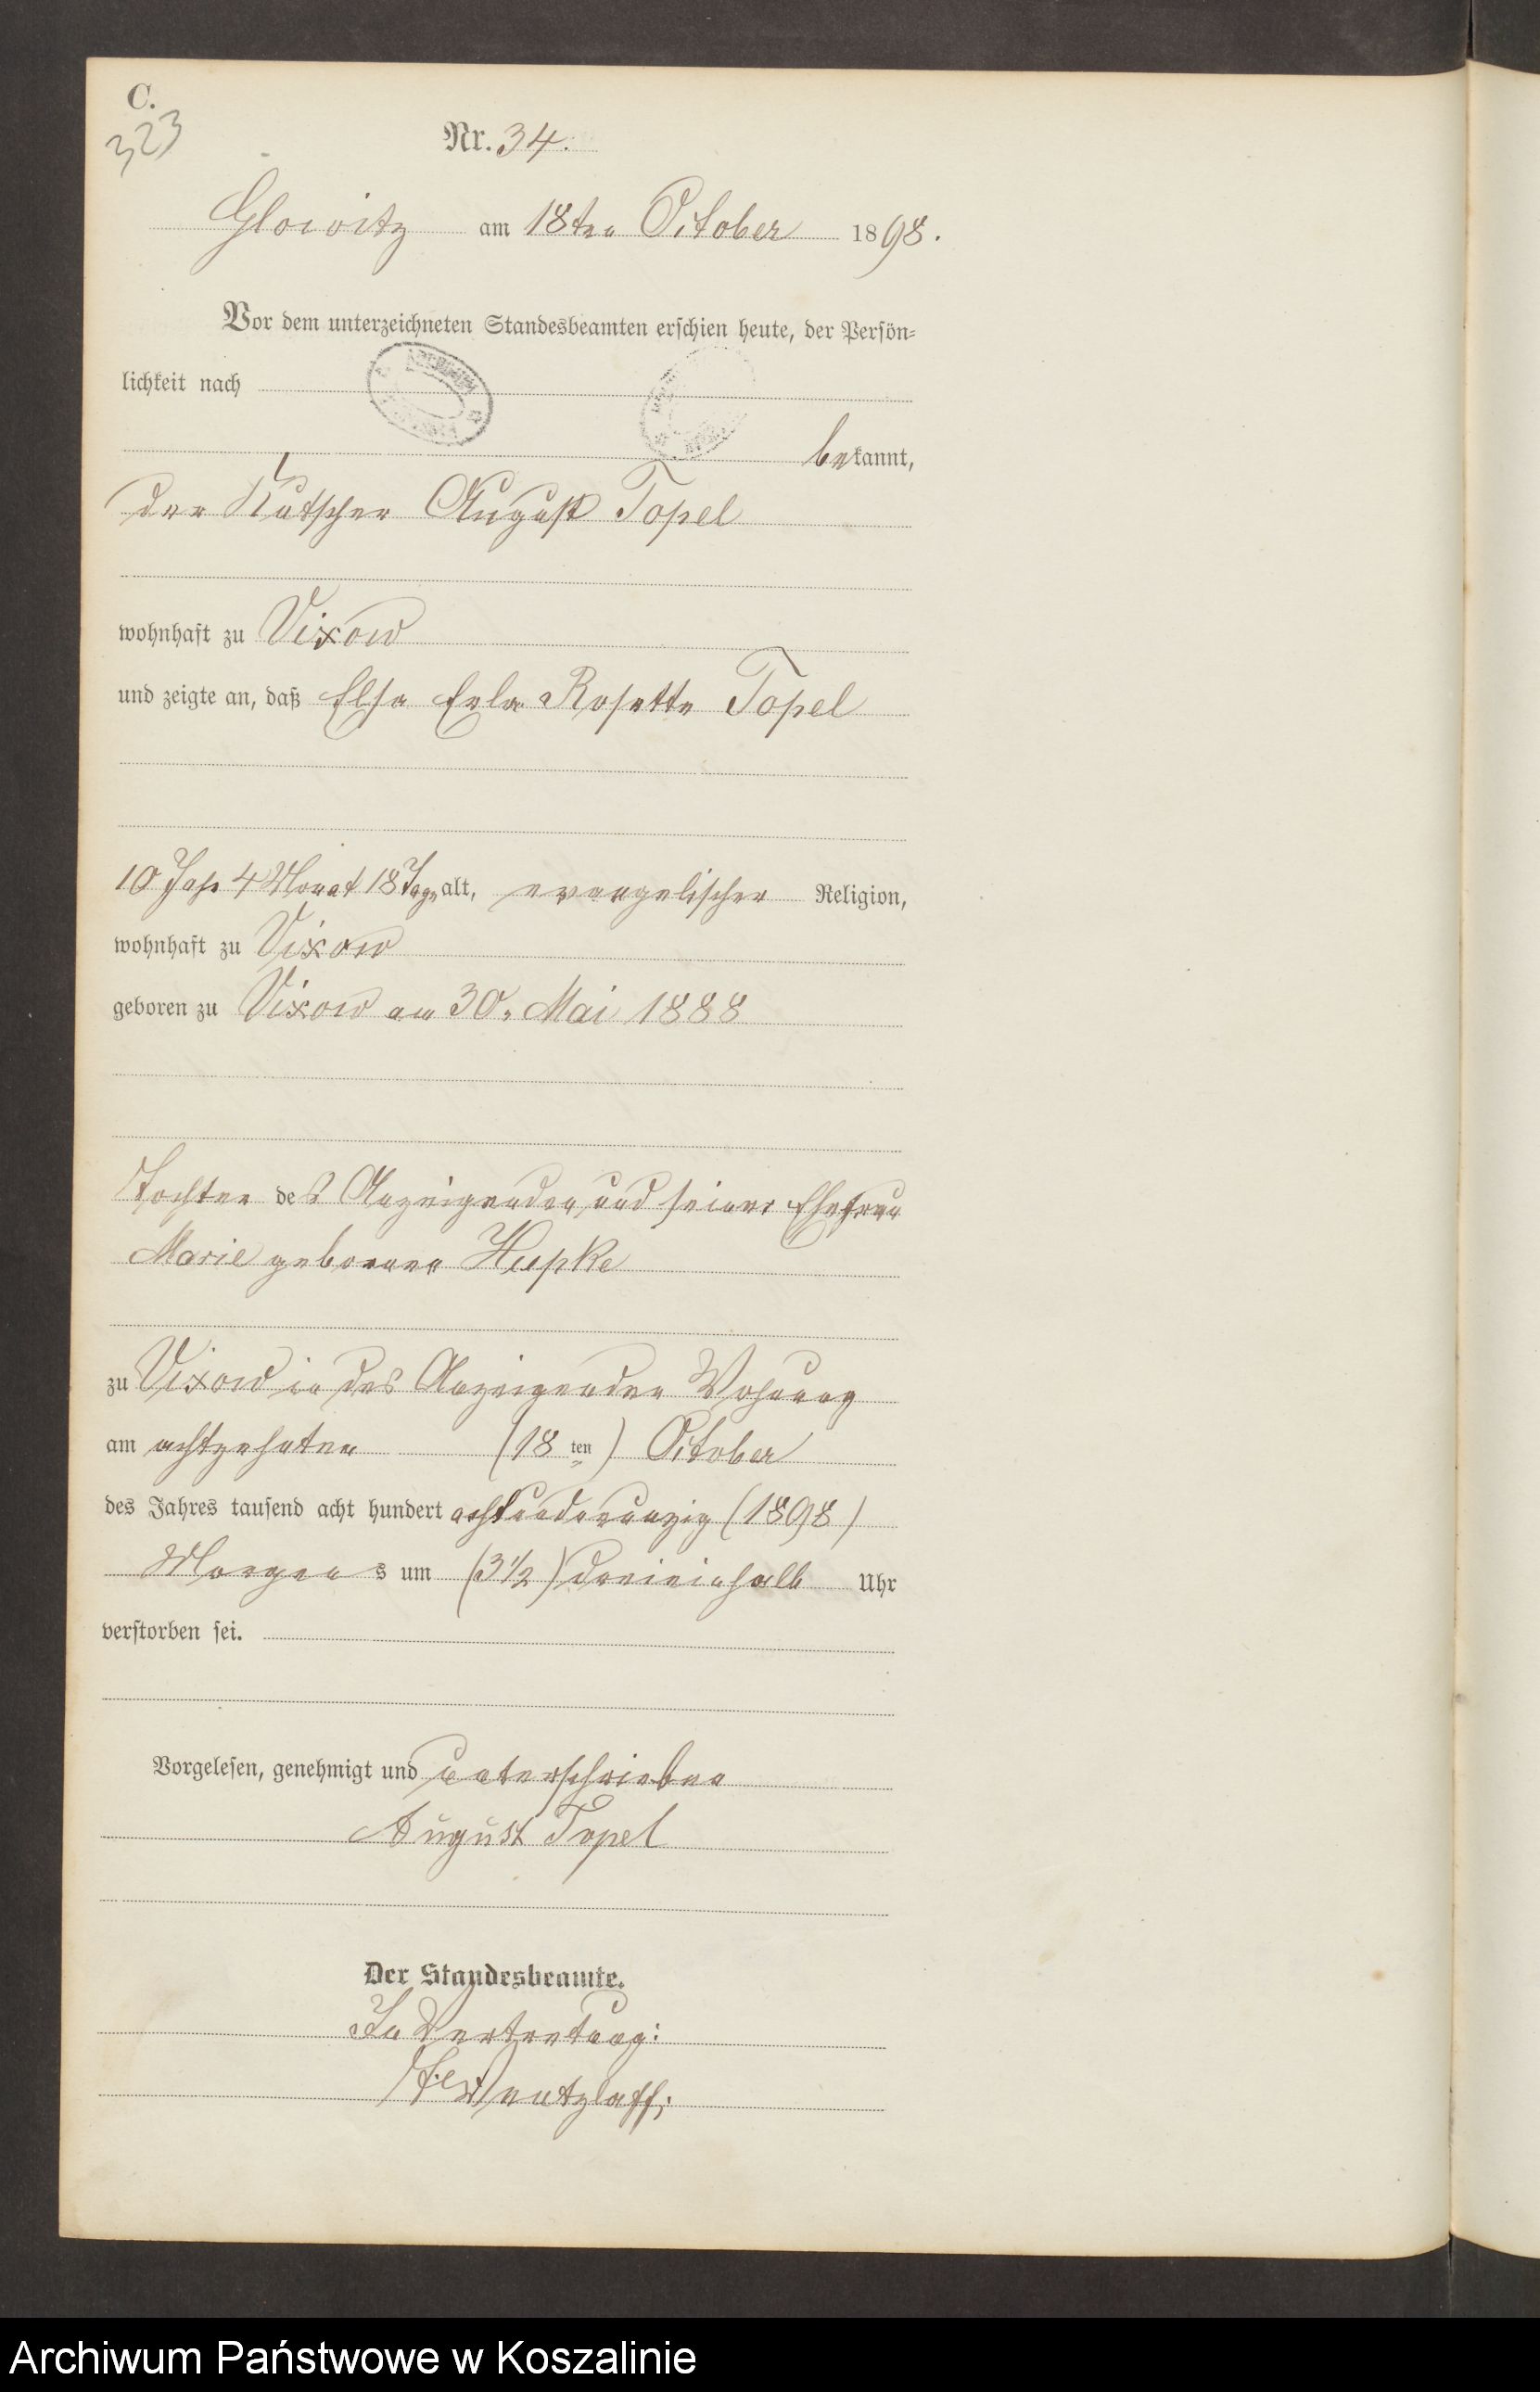 C.
323
Nr. 34.
Glowitz am 18ten October 1898.
Vor dem unterzeichneten Standesbeamten erschien heute, der Persön-
lichkeit nach
bekannt,
der Kutscher August Topel
wohnhaft zu Vixow
und zeigte an, daß Elsa Erla Rosette Topel
10 Jahr 4 Monat 18 Tage alt, evangelischer Religion,
wohnhaft zu Vixow
geboren zu Vixow am 30. Mai 1888
Tochter des Anzeigenden und seiner Ehefrau
Marie geborenen Hupke
zu Vixow in des Anzeigenden Wohnung
am achtzehnten (18ten) October
des Jahres tausend acht hundert achtundneunzig (1898)
Morgens um (3½) dreieinhalb Uhr
verstorben sei.
Vorgelesen, genehmigt und unterschrieben
August Topel
Der Standesbeamte.
In Vertretung:
Wentzlaff;
Archiwum Państwowe w Koszalinie